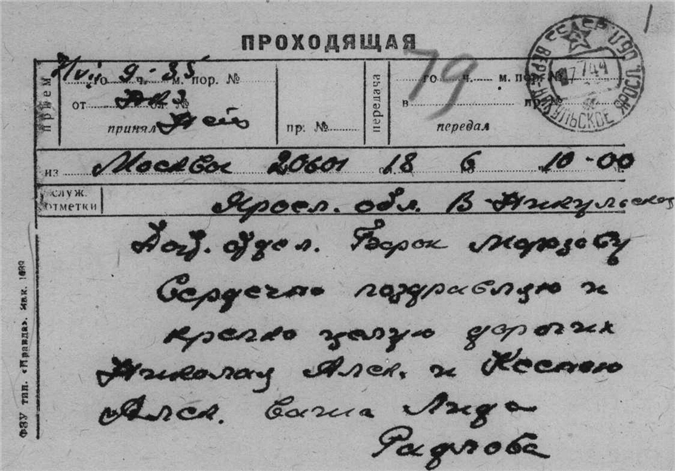 1
ПРОХОДЯЩАЯ
79
прием
го 9 ч. 35 м. пор. №
от
принял
пр. №
передача
го ч. м. пор. №
в пр. №
передал
из Москвы 20601 18 6 10-00
служ. отметки
Яросл. обл. В-Никульское
Почт. отдел. Борок Морозову
Сердечно поздравляю и
крепко целую дорогих
Николая Алек. и Ксению
Алек. ваша Лида
Радлова
ФЗУ тип. «Правда».